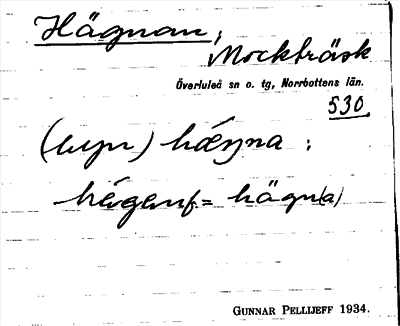 Hägnan,
Mockträsk
Överluleå sn o. tg, Norrbottens län.
530
hæŋna :
= hägn(a)
GUNNAR PELLIJEFF 1934.